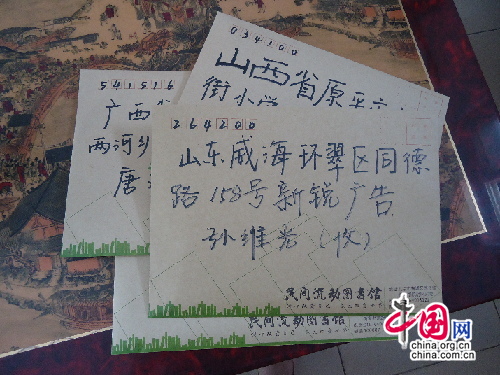 034100
山西省原平六
街小学
541516
广西
两河乡
唐
264200
山东威海环翠区同德
路158号新锐广告
孙维
(收)
民间流动图书馆
民间流动图书馆
中国网
www.china.org.cn
china.com.cn